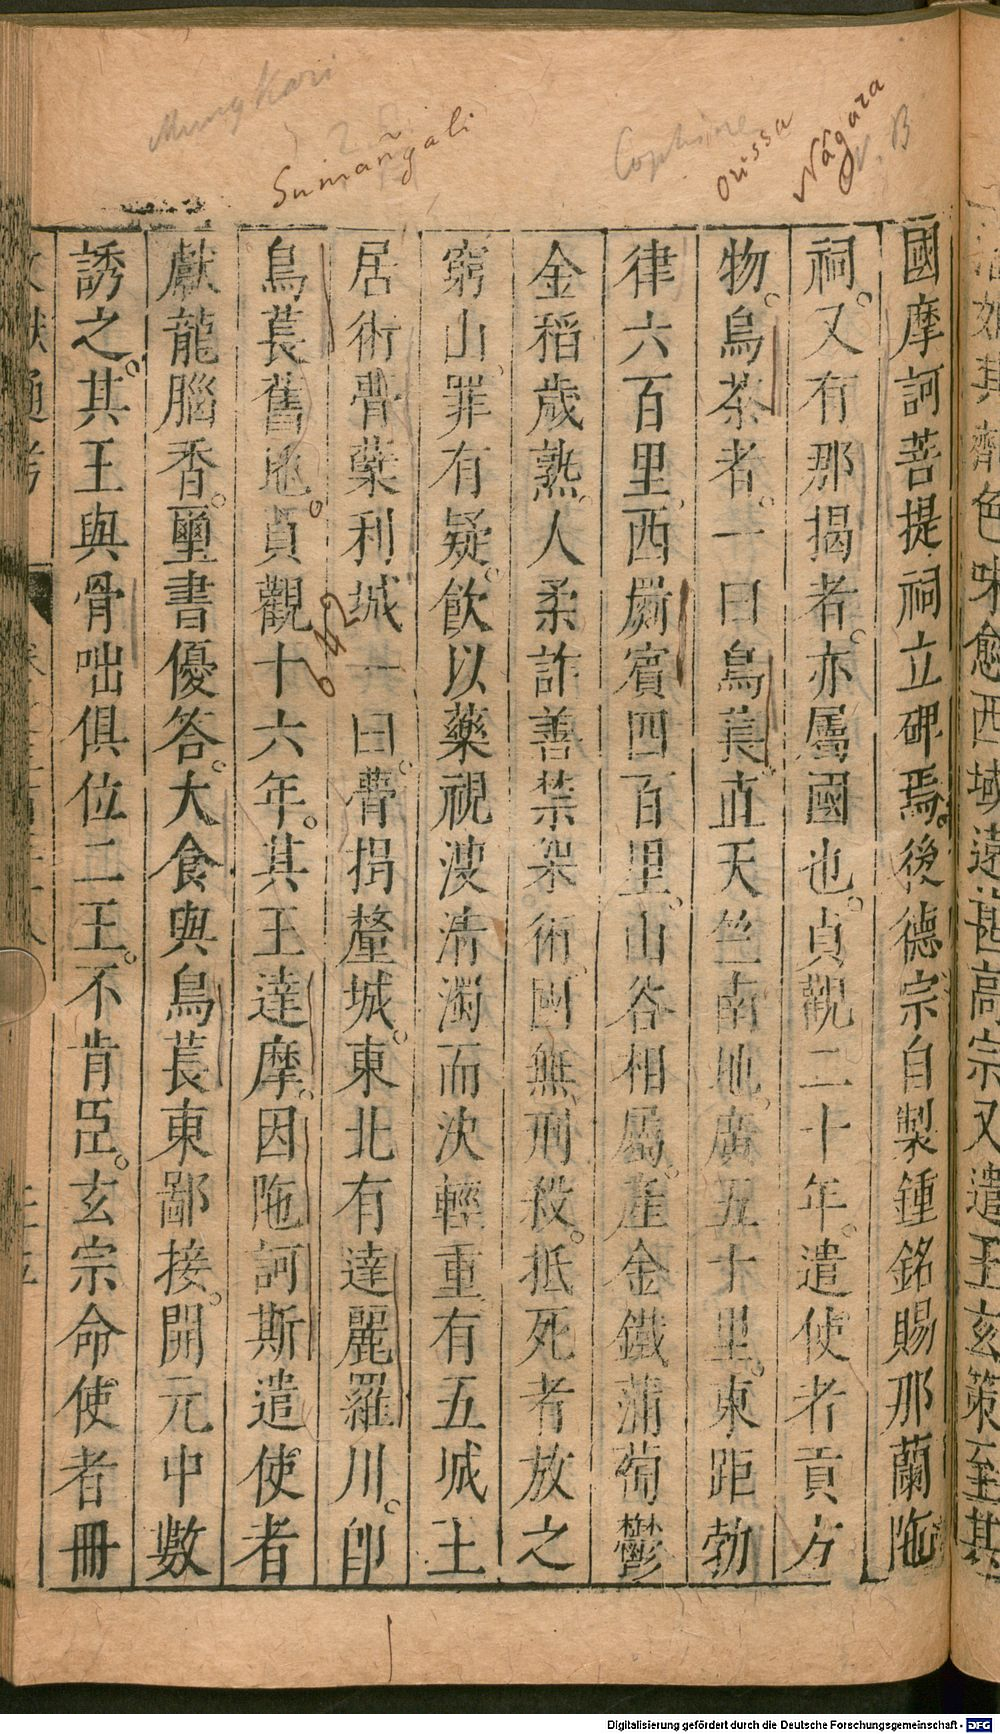 Mungkari
Sumañgali
Cophene
Orissa
Nâgara
N. B
國摩訶菩提祠立碑焉。後德宗自製鍾銘賜那蘭陁
祠。又有那揭者。亦屬國也。貞觀二十年。遣使者貢方
物。烏茶者。一曰烏萇。直天竺南。地廣五十里。東距勃
律六百里。西罽賓四百里。山谷相屬。產金鐵蒲萄鬱
金稻歲熟。人柔詐善禁架術。國無刑殺。抵死者放之
窮山。罪有疑。飲以藥視溲清濁而決輕重。有五城王
居術瞢櫱利城一曰。瞢揭釐城。東北有達麗羅川。卽
烏萇舊地。貞觀十六年。其王達摩。因陁訶斯遣使者
642
獻龍腦香。璽書優答。大食與烏萇東鄙接。開元中數
誘之。其王與骨咄俱位二王。不肯臣。玄宗命使者冊
Digitalisierung gefördert durch die Deutsche Forschungsgemeinschaft - DFG